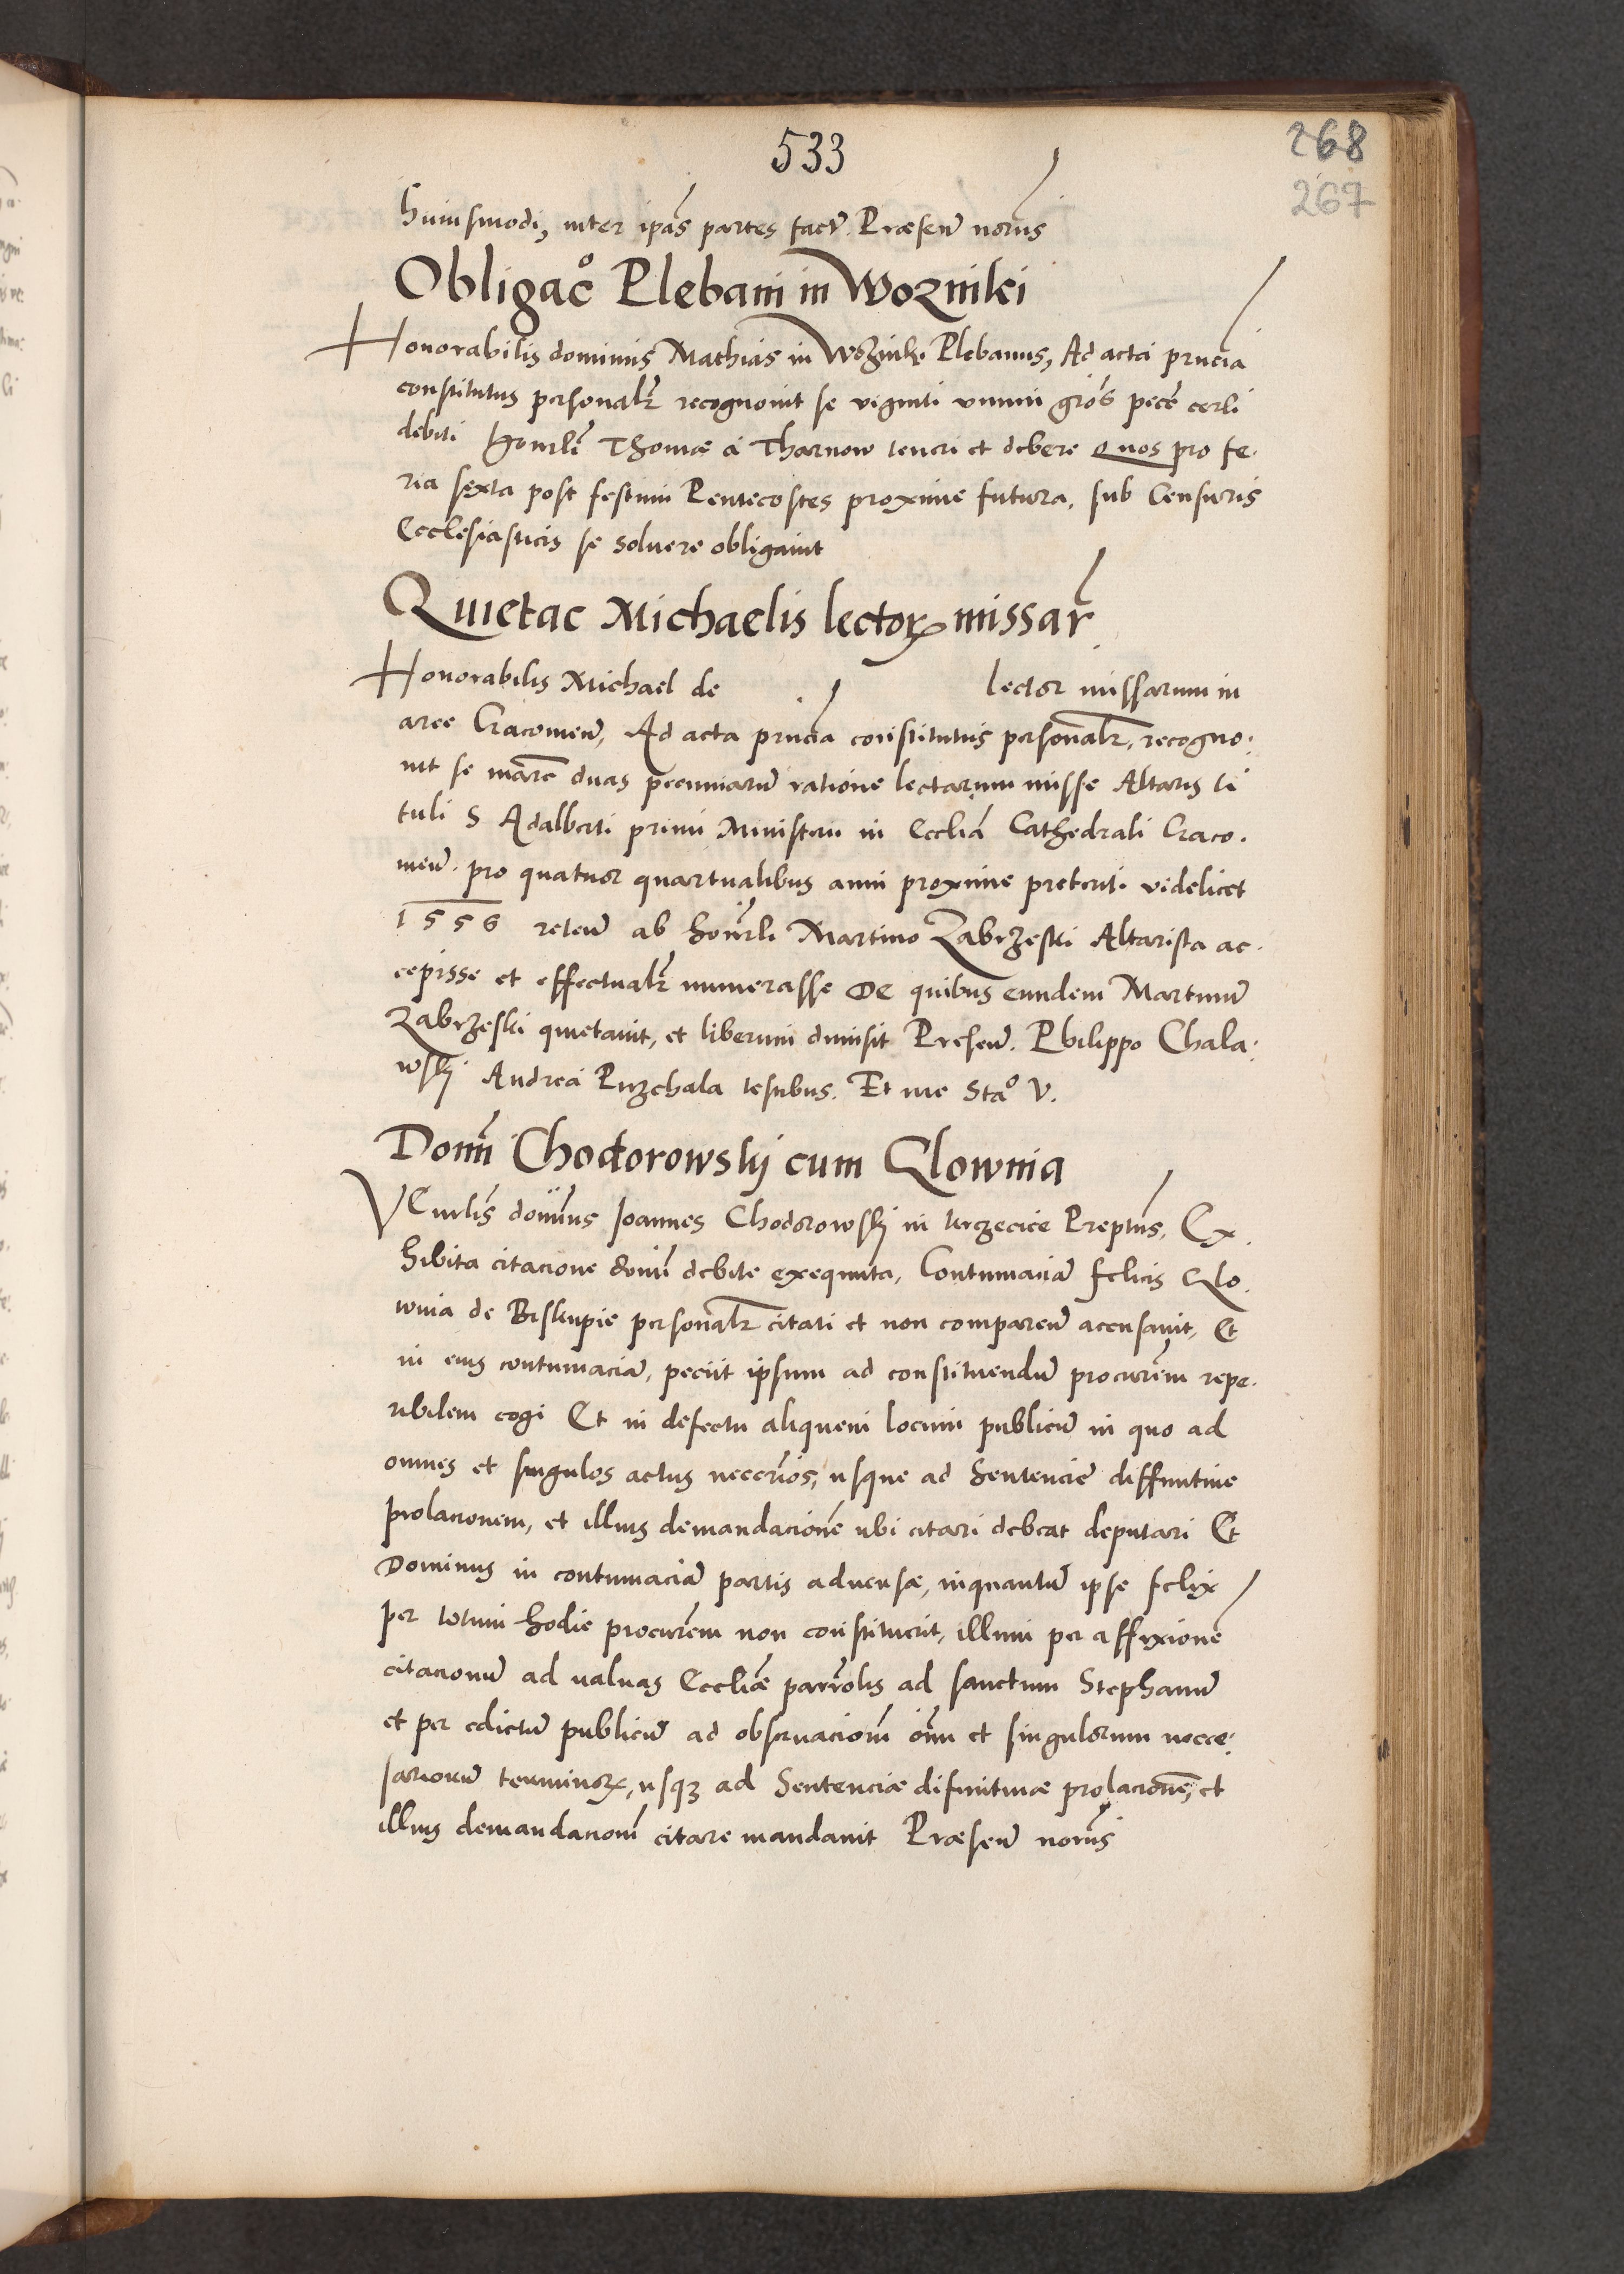 533
268
267
huiusmodi, inter ipās partes factū. Præsen̄ norijs
Obligac̊ Plebani in Wozniki
Honorabilis dominus Mathias in Wozniki Plebanus, Ad acta prncia
constitutus personalr̄ recognouit se viginti vnum gros̄ pecē cerli
debiti honrli Thomæ á Tharnow teneri et debere quos pro fe.
ria sexta post festum Pentecostes proxime futura, sub Censuris
Ecclesiasticis se soluere obligauit
Quietac Michaelis lectoꝝ missar̄
Honorabilis Michael de lector missarum in
arce Cracouień, Ad acta prncia constitutus personalr̄, recogno:
uit se marc̄ duas pecuniarū ratione lectarum misse Altaris ti
tuli S Adalberti primi Ministerii in Eccliā Cathedrali Craco.
uień. pro quatuor quartualibus anni proxime preteriti videlicet
1556 reteń ab honrli Martino Zabrzeski Altarista ac.
cepisse et effectualr̄ numerasse De quibus eundem Martinū
Zabrzeski quietauit, et liberum dimisit Presen̄. Philippo Chala:
wskij Andrea Puzchala testibus. Et me Stå V.
Domī Chodorowskij cum Glownia
VEnrlis dominus Joannes Chodorowskij in Prept̄us, Ex.
hibita citacione domī debite exequuta, Contumaciā felicis Glo.
wnia de Biskupie personalr̄ citati et non comparen̄ acusauit, Et
in eius contumaciā, peciit ipsum ad constituendū procurēm repe.
ribilem cogi Et in defectu aliquem locum publicū in quo ad
omnes et singulos actus neccrios, usque ad Sentencie diffinitiue
prolacionem, et illius demandacionē ubi citari debeat deputari Et
Dominus in contumaciā partis aduersæ, inquantū ipse felix
per totum hodie procurēm non constituerit, illum per affixionē
citacionū ad ualuas Eccliæ parrōlis ad sanctum Stephanū
et per edictū publicū ad obseruacionī oīm et singulorum necce:
sariorū terminoꝝ, usqꝫ ad Sentenciæ difinitiuæ prolacionē, et
illius demandacionī citare mandauit Præsen̄ norijs